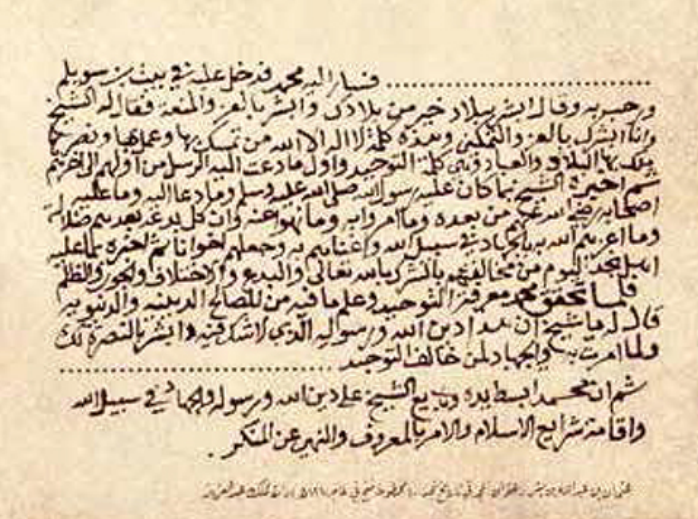 ................................ فسار اليه محمد فدخل عليه في بيت بن سويلم
ورحب به وقال ابشر ببلاد خير من بلادك وابشر بالعز والمنعة فقال له الشيخ
وانا ابشرك بالعز والتمكين وهذه كلمة لا اله الا الله من تمسك بها وعمل بها ونصرها
ملك بها البلاد والعباد وهي كلمة التوحيد واول ما دعت اليه الرسل من اولهم الى اخرهم
ثم اخبره الشيخ بما كان عليه رسول الله صلى الله عليه وسلم وما دعا اليه وما عليه
اصحابه رضي الله عنهم من بعده وما امروا به وما نهوا عنه وان كل بدعة بعدهم ضلالة
وما اعزهم الله به بالجهاد في سبيل الله واغناهم به وجعلهم اخوانا ثم اخبره بما عليه
اهل نجد اليوم من مخالفتهم بالشرك بالله تعالى والبدع والاختلاف والجور والظلم
فلما تحقق محمد معرفة التوحيد وعلم ما فيه من المصالح الدينية والدنيوية
قال له يا شيخ ان هذا دين الله ورسوله الذي لا شك فيه وابشر بالنصرة لك
ولما امرت به والجهاد لمن خالف التوحيد ................................
ثم ان محمد ابسط يده وبايع الشيخ على دين الله ورسوله والجهاد في سبيل الله
واقامة شرايع الاسلام والامر بالمعروف والنهي عن المنكر .
عثمان بن عبدالله بن بشر ، عنوان المجد في تاريخ نجد